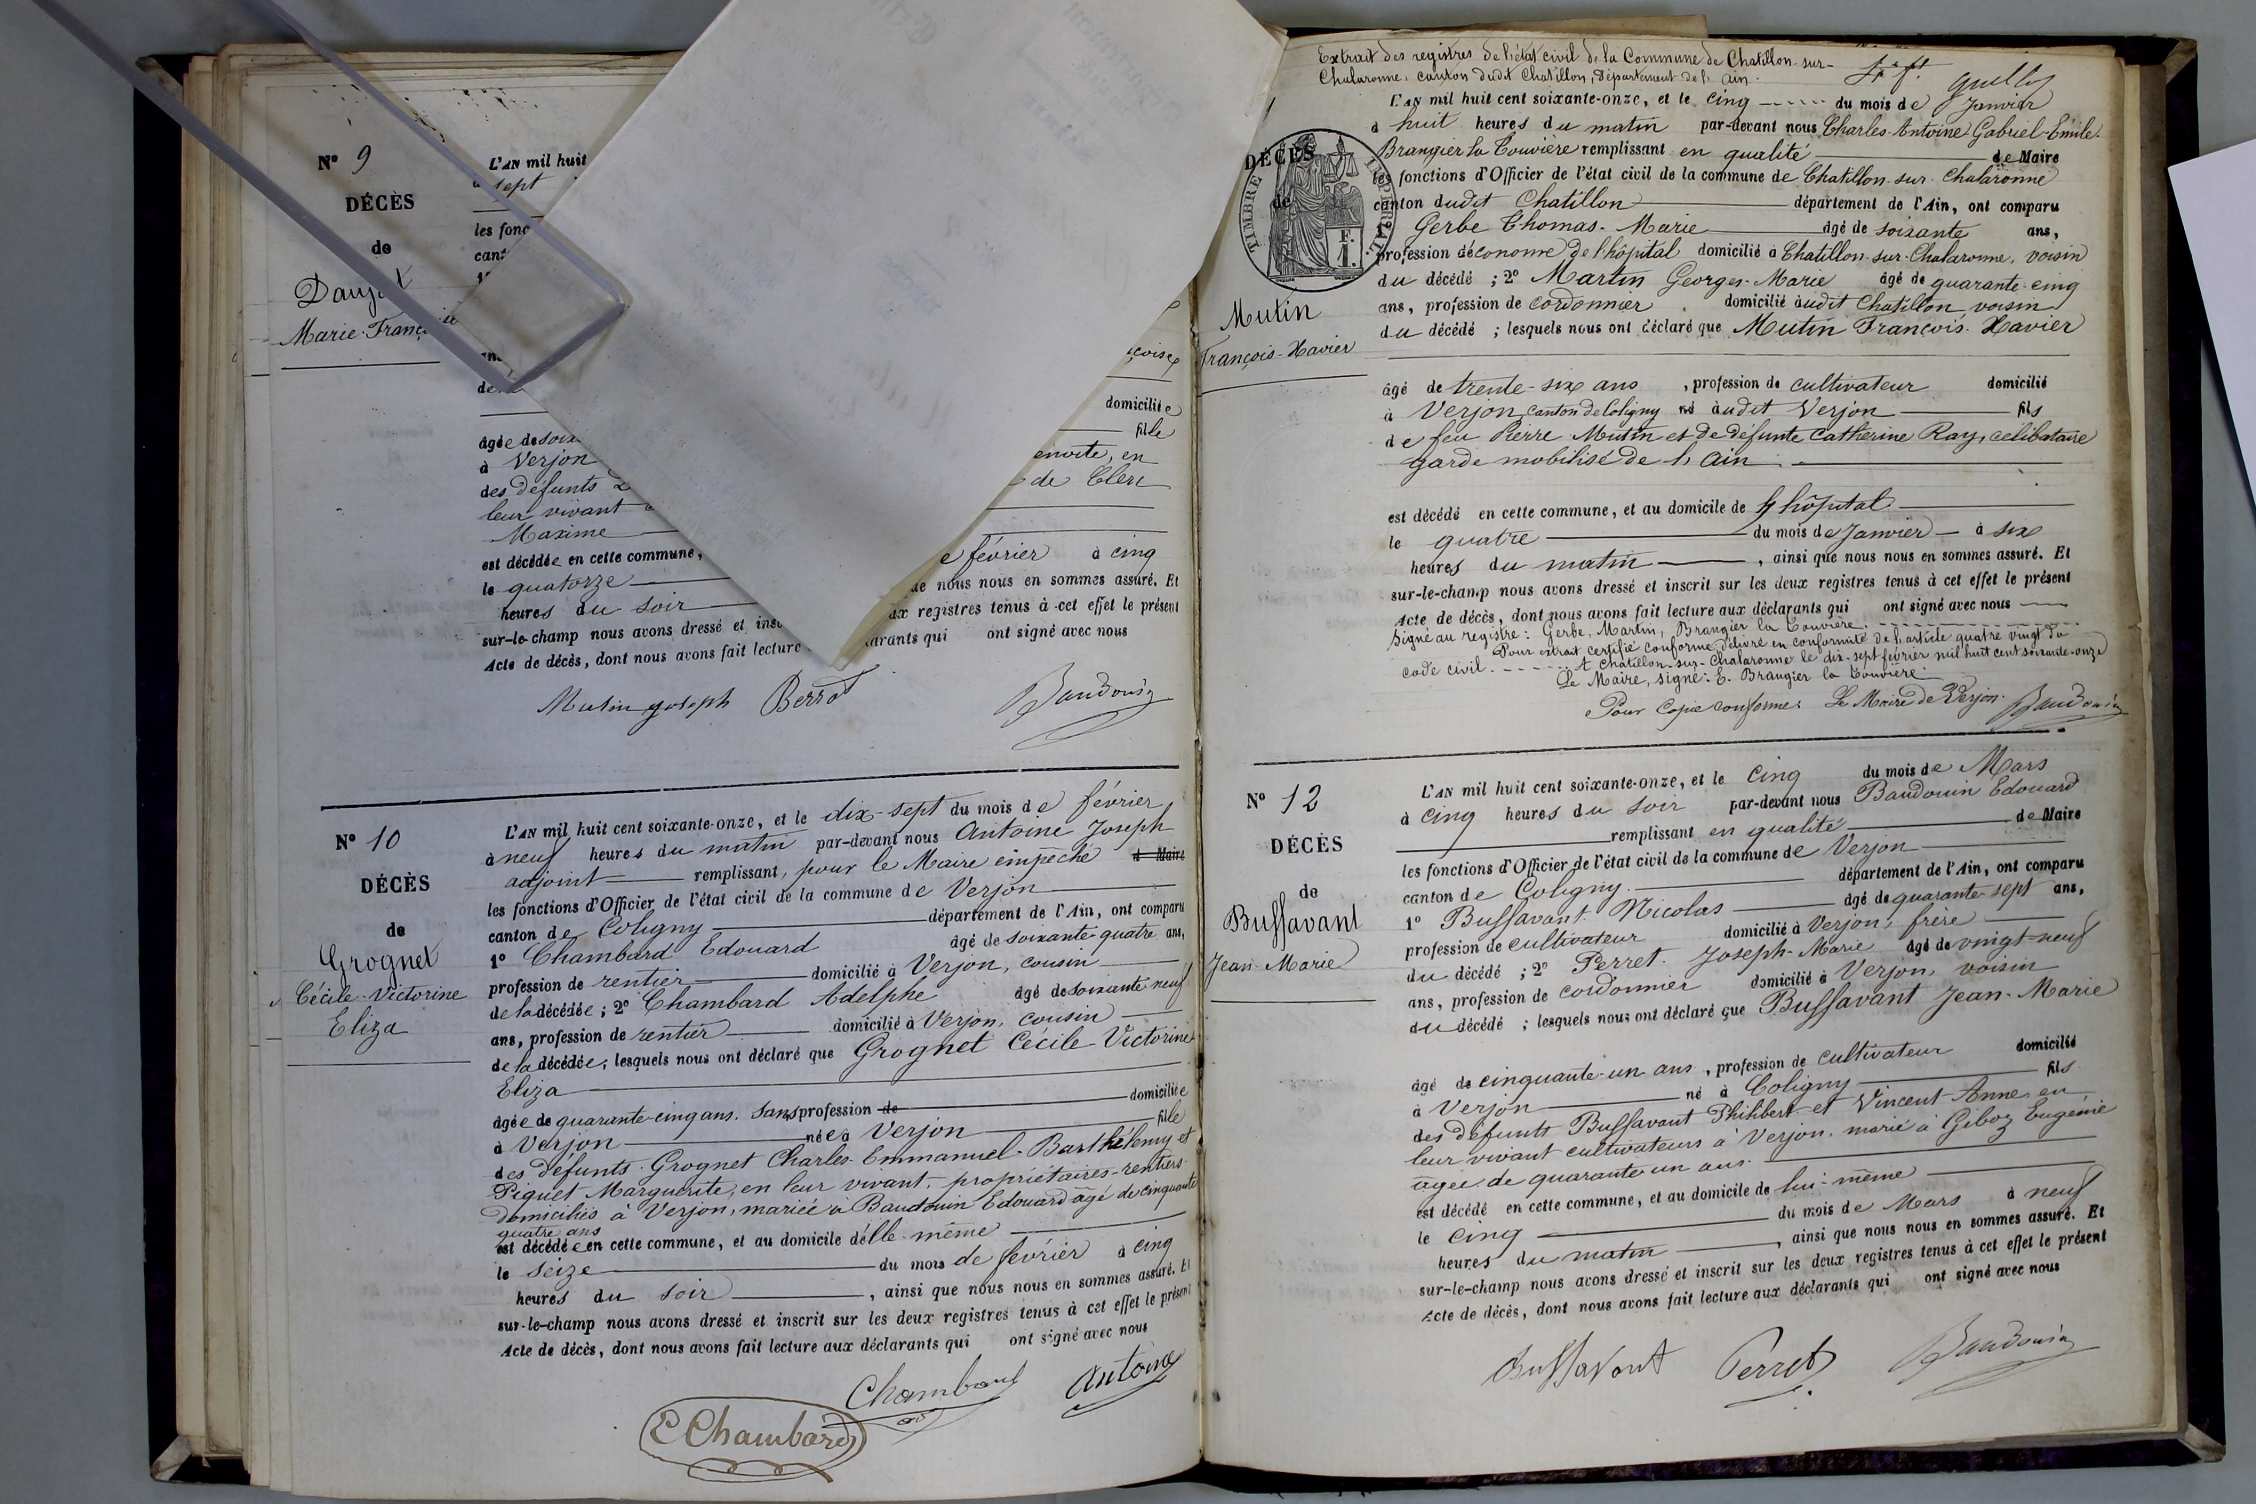 N° 9
DÉCÈS
de
Marie-Franç
L'AN mil huit
à sept
les fonc
can
domiciliée
fille
âgée de soix
à Verjon
des défunts
de Clerc
leur vivant
Maxime
est décédée en cette commune,
le quatorze
e février à cinq
heures du soir
ue nous nous en sommes assuré. Et
sur-le-champ nous avons dressé et insc
ux registres tenus à cet effet le présent
Acte de décès, dont nous avons fait lecture
arants qui ont signé avec nous
Mutin joseph Berrod Baudouin
N° 10
DÉCÈS
de
Grognet
Cécile-Victorine
Eliza
L'AN mil huit cent soixante-onze, et le dix-sept du mois de février
à neuf heures du matin par-devant nous Antoine Joseph
adjoint remplissant, pour le Maire empêché d Maire
les fonctions d'Officier de l'état civil de la commune de Verjon
canton de Coligny département de l'Ain, ont comparu
1° Chambard Edouard âgé de soixante-quatre ans,
profession de rentier domicilié à Verjon, cousin
de la décédée ; 2° Chambard Adelphe âgé de soixante neuf
ans, profession de rentier domicilié à Verjon, cousin
de la décédée ; lesquels nous ont déclaré que Grognet Cécile-Victorine
Eliza
âgée de quarante-cinq ans. Sans profession de domiciliée
à Verjon née à Verjon fille
des défunts Grognet Charles-Emmanuel-Barthélemy et
Piquet Marguerite, en leur vivant propriétaires-rentiers
domiciliés à Verjon, mariée à Baudouin Edouard âgé de cinquante
quatre ans
est décédée en cette commune, et au domicile d'elle-même
le seize du mois de février à cinq
heures du soir , ainsi que nous nous en sommes assuré. Et
sur-le-champ nous avons dressé et inscrit sur les deux registres tenus à cet effet le présent
Acte de décès, dont nous avons fait lecture aux déclarants qui ont signé avec nous
Chambard Antoine
E Chambard
Extrait des registres de l'état civil de la Commune de Chatillon-sur-
Chalaronne, canton dudit Chatillon, Département de l'Ain.
L'AN mil huit cent soixante-onze, et le cinq du mois de Janvier
à huit heures du matin par-devant nous Charles-Antoine Gabriel-Emile
Brangier la Couvière remplissant en qualité de Maire
les fonctions d'Officier de l'état civil de la commune de Chatillon-sur-Chalaronne
canton dudit Chatillon département de l'Ain, ont comparu
Gerbe Thomas-Marie âgé de soixante ans,
profession d'économe de l'hôpital domicilié à Chatillon-sur-Chalaronne, voisin
du décédé ; 2° Martin Georges-Marie âgé de quarante-cinq
ans, profession de cordonnier domicilié audit Chatillon, voisin
du décédé ; lesquels nous ont déclaré que Mutin François-Xavier
DÉCÈS
de
TIMBRE IMPERIAL
F.
1.
Mutin
François-Xavier
âgé de trente-six ans , profession de cultivateur domicilié
à Verjon, canton de Coligny né audit Verjon fils
de feu Pierre Mutin et de défunte Catherine Ray, celibataire
garde mobilisé de l'Ain
est décédé en cette commune, et au domicile de l'hôpital
le quatre du mois de Janvier à six
heures du matin , ainsi que nous nous en sommes assuré. Et
sur-le-champ nous avons dressé et inscrit sur les deux registres tenus à cet effet le présent
Acte de décès, dont nous avons fait lecture aux déclarants qui ont signé avec nous
Signé au registre : Gerbe, Martin, Brangier la Couvière.
Pour extrait certifié conforme, délivré en conformité de l'article quatre vingt du
code civil. A Chatillon-sur-Chalaronne le dix-sept février mil huit cent soixante-onze
Le Maire, signé : E. Brangier la Couvière
Pour Copie conforme : Le Maire de Verjon. Baudouin
N° 12
DÉCÈS
de
Buffavant
Jean-Marie
L'AN mil huit cent soixante-onze, et le cinq du mois de Mars
à cinq heures du soir par-devant nous Baudouin Edouard
remplissant en qualité de Maire
les fonctions d'Officier de l'état civil de la commune de Verjon
canton de Coligny département de l'Ain, ont comparu
1° Buffavant Nicolas âgé de quarante-sept ans,
profession de cultivateur domicilié à Verjon, frère
du décédé ; 2° Perret Joseph-Marie âgé de vingt-neuf
ans, profession de cordonnier domicilié à Verjon, voisin
du décédé ; lesquels nous ont déclaré que Buffavant Jean-Marie
âgé de cinquante-un ans , profession de cultivateur domicilié
à Verjon né à Coligny fils
des défunts Buffavant Philibert et Vincent Anne en
leur vivant cultivateurs à Verjon, marié à Giboz Eugénie
âgée de quarante-un ans.
est décédé en cette commune, et au domicile de lui-même
le cinq du mois de Mars à neuf
heures du matin , ainsi que nous nous en sommes assuré. Et
sur-le-champ nous avons dressé et inscrit sur les deux registres tenus à cet effet le présent
Acte de décès, dont nous avons fait lecture aux déclarants qui ont signé avec nous
Buffavant Perret Baudouin